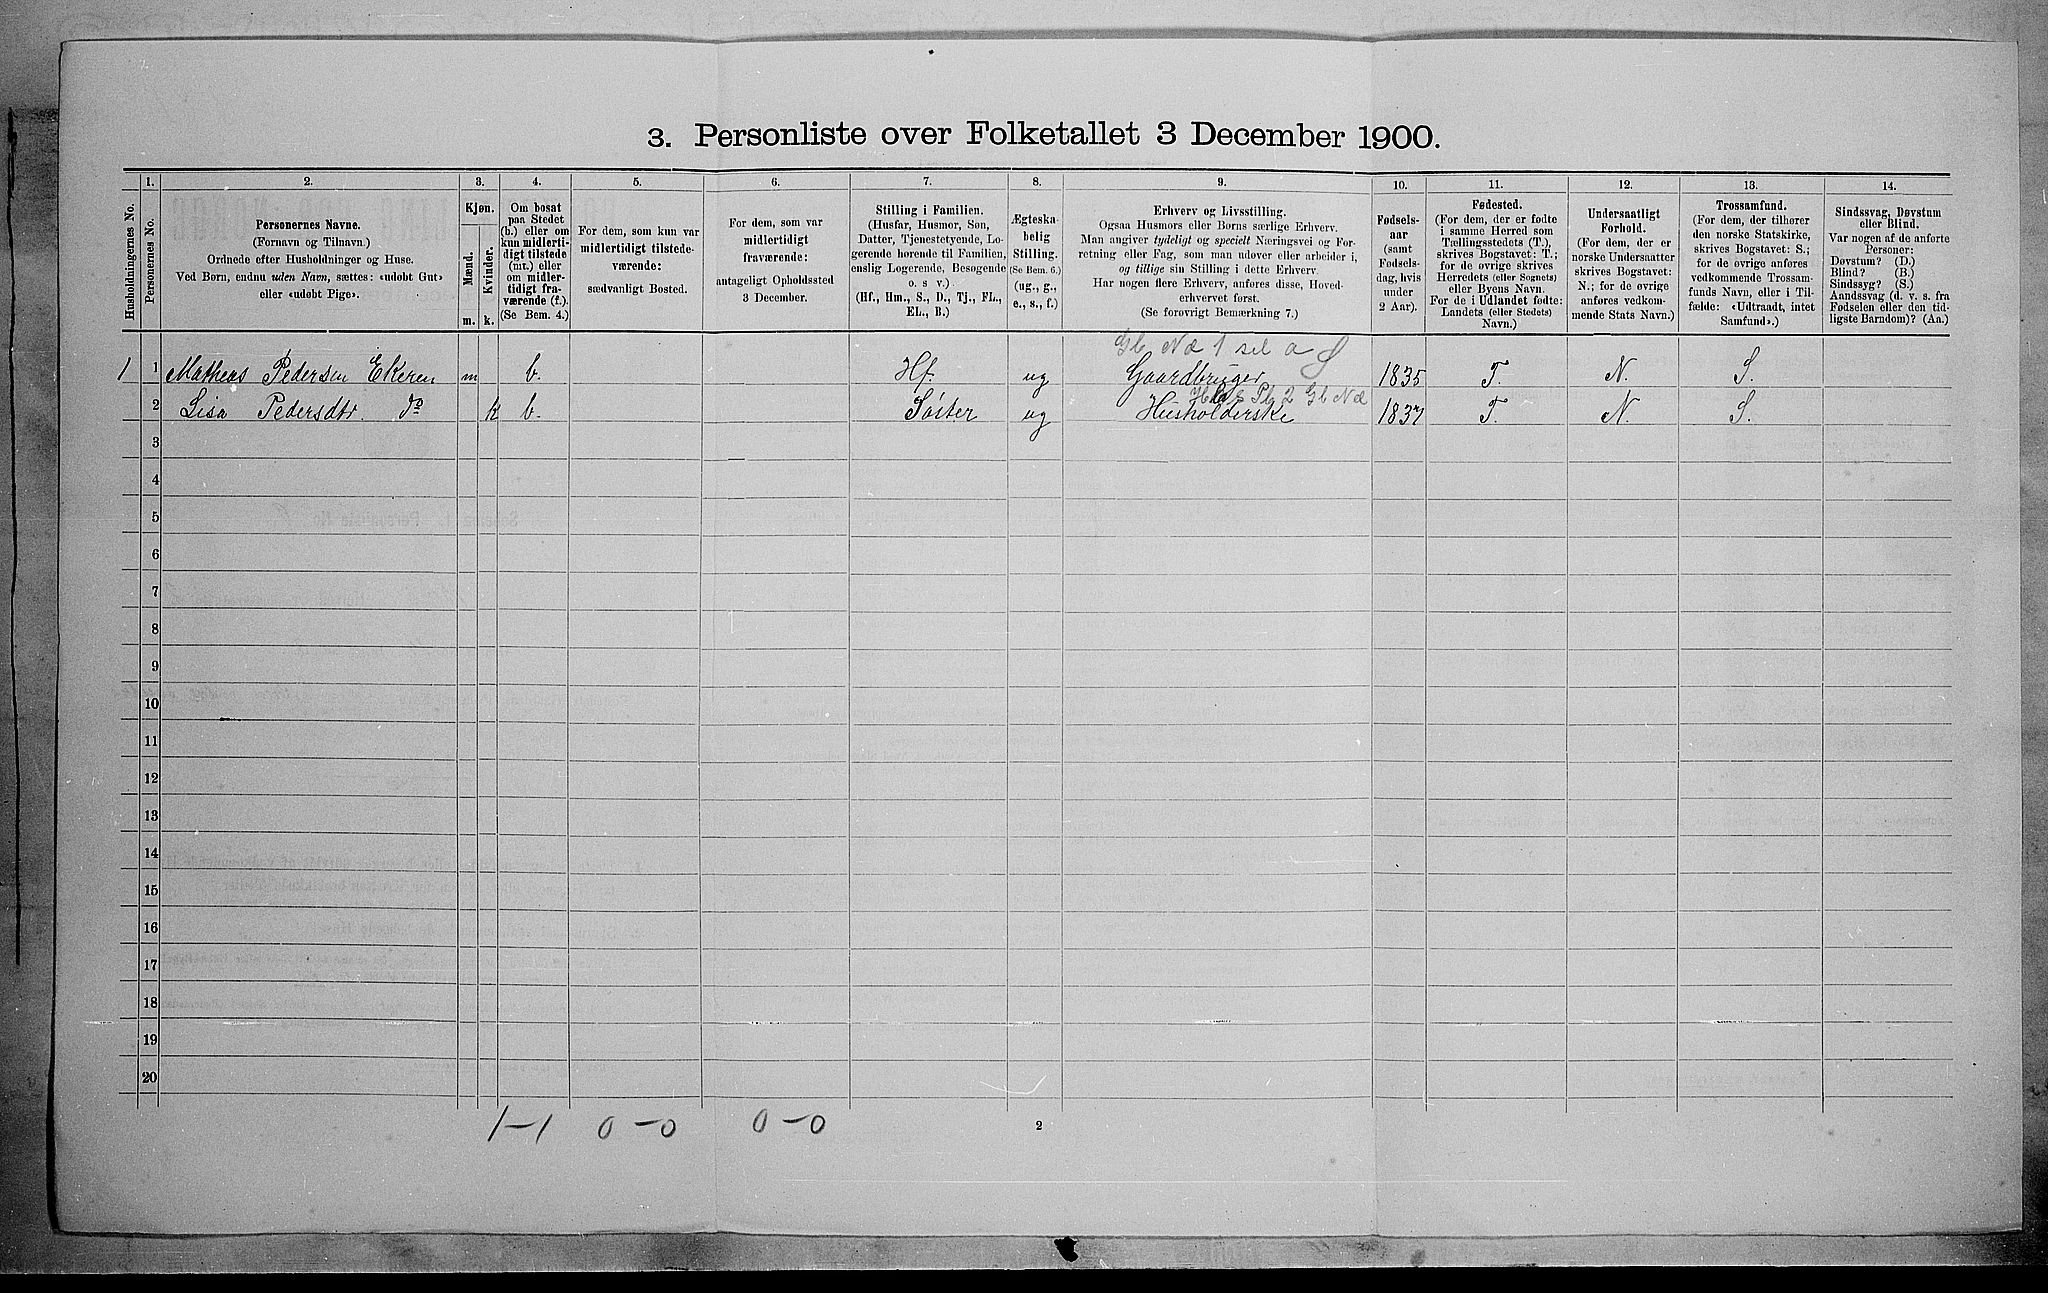 3. Personliste over Folketallet 3 December 1900.
1. 2. 3. 4. 5. 6. 7. 8. 9. 10. 11. 12. 13. 14.
Husholdningernes No.
Personernes No.
Personernes Navne.
(Fornavn og Tilnavn.)
Ordnede efter Husholdninger og Huse.
Ved Børn, endnu uden Navn, sættes: «udøbt Gut»
eller «udøbt Pige».
Kjøn.
Mænd.
Kvinder.
m. k.
Om bosat
paa Stedet
(b.) eller om
kun midlerti-
digt tilstede
(mt.) eller
om midler-
tidigt fra-
værende (f.).
(Se Bem. 4.)
For dem, som kun var
midlertidigt tilstede-
værende:
sædvanligt Bosted.
For dem, som var
midlertidigt
fraværende:
antageligt Opholdssted
3 December.
Stilling i Familien.
(Husfar, Husmor, Søn,
Datter, Tjenestetyende, Lo-
gerende hørende til Familien,
enslig Logerende, Besøgende
o. s v.)
(Hf., Hm., S., D., Tj., FL.,
EL., B.)
Ægteska-
belig
Stilling.
(Se Bem. 6.)
(ug., g.,
e., s., f.)
Erhverv og Livsstilling.
Ogsaa Husmors eller Børns særlige Erhverv.
Man angiver tydeligt og specielt Næringsvei og For-
retning eller Fag, som man udøver eller arbeider i,
og tillige sin Stilling i dette Erhverv.
Har nogen flere Erhverv, anføres disse, Hoved-
erhvervet først.
(Se forøvrigt Bemærkning 7.)
Fødsels-
aar
(samt
Fødsels-
dag, hvis
under
2 Aar).
Fødested.
(For dem, der er fødte
i samme Herred som
Tællingsstedets (T.),
skrives Bogstavet: T.;
for de øvrige skrives
Herredets (eller Sognets)
eller Byens Navn.
For de i Udlandet fødte:
Landets (eller Stedets)
Navn.)
Undersaatligt
Forhold.
(For dem, der er
norske Undersaatter
skrives Bogstavet:
N.; for de øvrige
anføres vedkom-
mende Stats Navn.)
Trossamfund.
(For dem, der tilhører
den norske Statskirke,
skrives Bogstavet: S.;
for de øvrige anføres
vedkommende Trossam-
funds Navn, eller i Til-
fælde: «Udtraadt, intet
Samfund».)
Sindssvag, Døvstum
eller Blind.
Var nogen af de anførte
Personer:
Døvstum? (D.)
Blind? (B.)
Sindssyg? (S.)
Aandssvag (d. v. s. fra
Fødselen eller den tid-
ligste Barndom)? (Aa.)
Gb Næ 1 sel a
1 1 Matheas Pedersen Ekeren m b. Hf. ug Gaardbruger 1835 T. N. S.
Pb 2 Gb Næ
2 Lisa Pedersdtr. do k b. Søster ug Husholderske 1837 T. N. S.
3
4
5
6
7
8
9
10
11
12
13
14
15
16
17
18
19
20
1–1 0–0 0–0 2